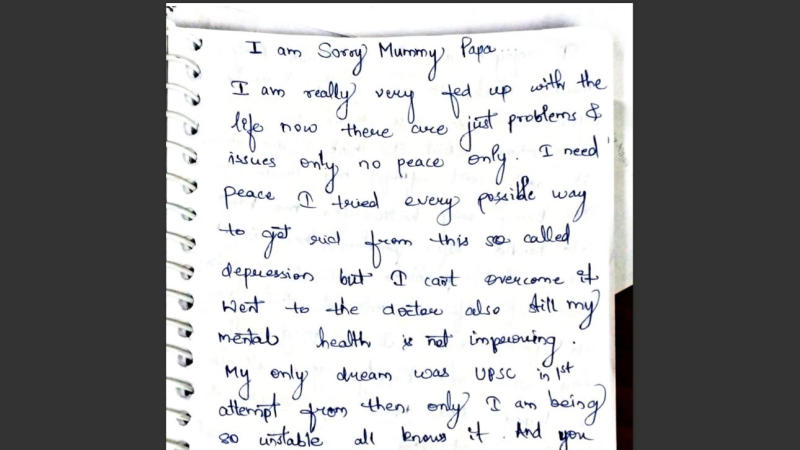 I am Sorry Mummy Papa...
I am really very fed up with the
life now there are just problems &
issues only no peace only. I need
peace I tried every possible way
to get rid from this so called
depression but I can't overcome it
Went to the doctor also still my
mental health is not improving.
My only dream was UPSC in 1st
attempt from then only I am being
so unstable all knows it. And you